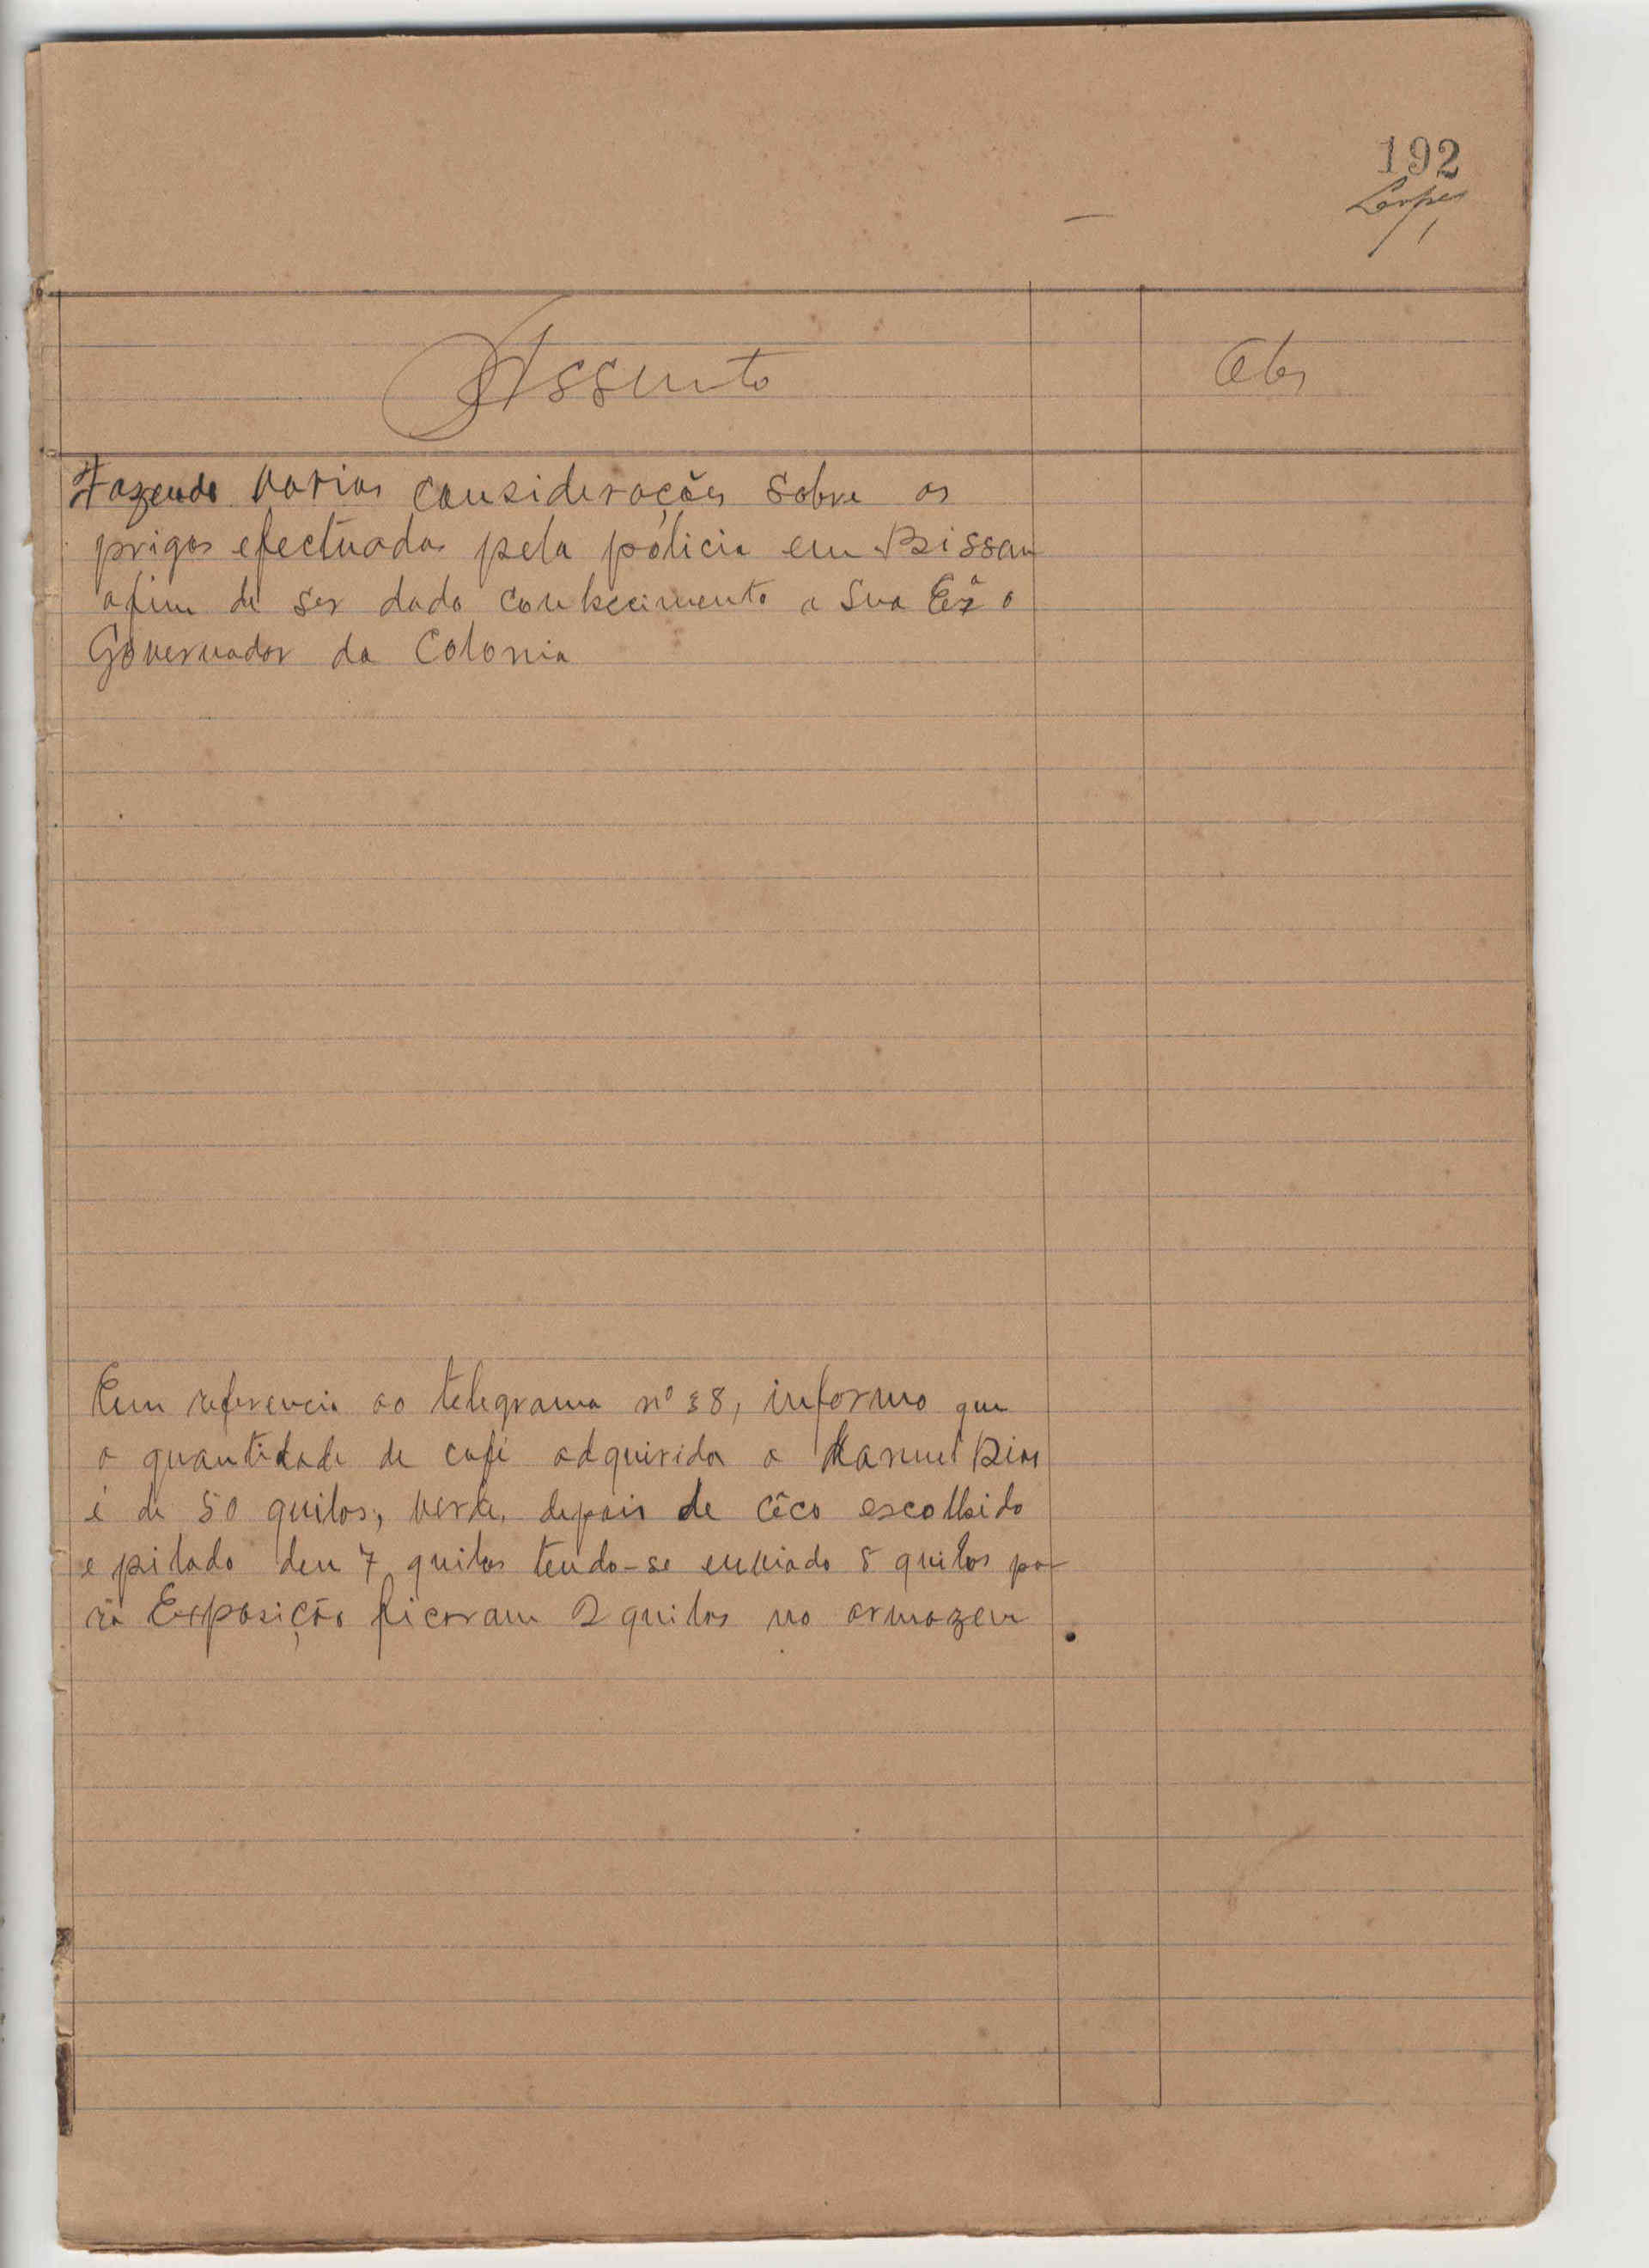 192
Lopes
Assunto
Obs
Fazendo varias considerações sobre as
prigos efectuadas pela pólicia em Bissau
afim de ser dado conhecimento a Sua Exª o
Governador da Colonia
Em referencia ao telegrama nº 38, informo que
a quantidade de café adquirida a Manuel Dias
é de 50 quilos, verde, depois de cêco escolhido
e pilado deu 7 quilos tendo-se enviado 5 quilos pa-
ra Exposição ficaram 2 quilos no armazem